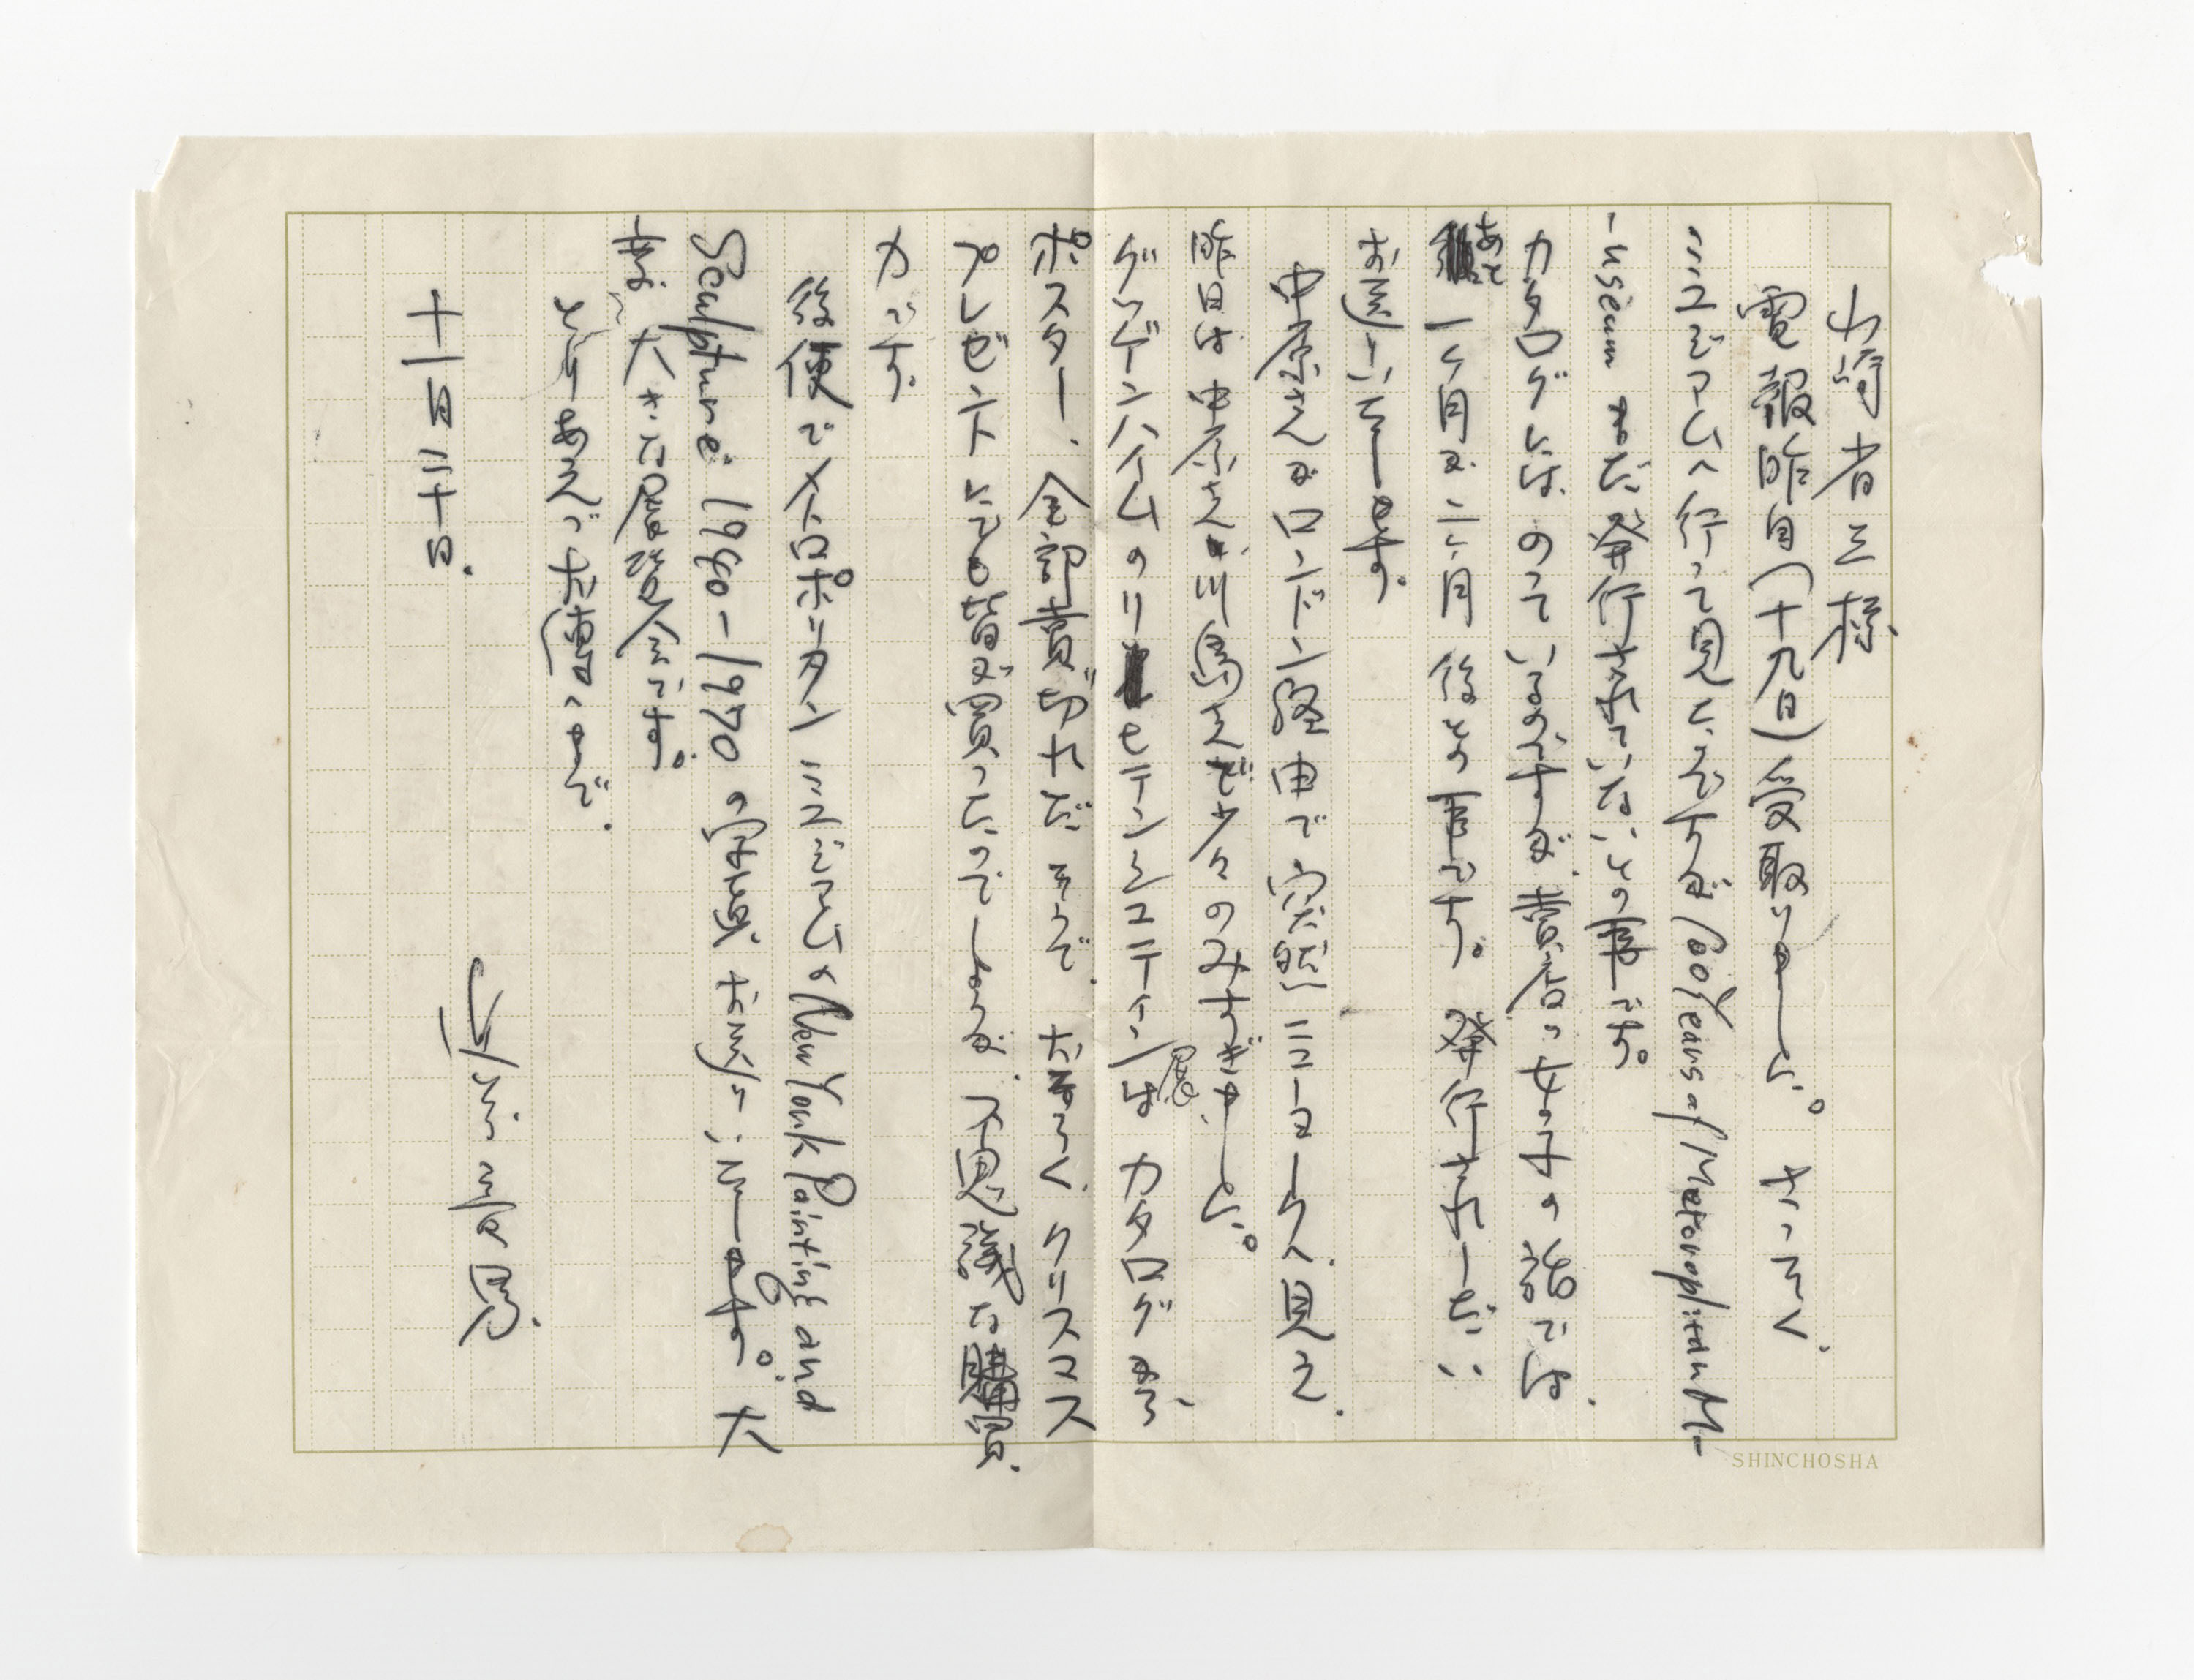 山崎省三様
電報昨日(十九日)受取りました。さっそく、
ミユゼアムへ行って見たんですが 100 Years of Metoroplitan M-
-useum まだ発行されていないとの事です。
カタログにはのっているのですが、売店の女の子の話では、
あと一ヶ月か二ヶ月後との事です。発行されしだい
お送りいたします。
中原さんがロンドン経由で突然ニューヨークへ見え、
昨日は中原さんと川島さんで少々のみすぎました。
グッゲンハイムのリヒテンシュティン展はカタログから、
ポスター、全部売切れだそうで、おそらく、クリスマス
プレゼントにでも皆が買ったのでしょうが、不思議な購買
力です。
後便でメトロポリタンミュゼアムのNew York Painting and
Sculpture: 1940-1970 の写真お送りいたします。大
変大きな展覧会です。
とりあえずお便りまで。
十一月二十日。